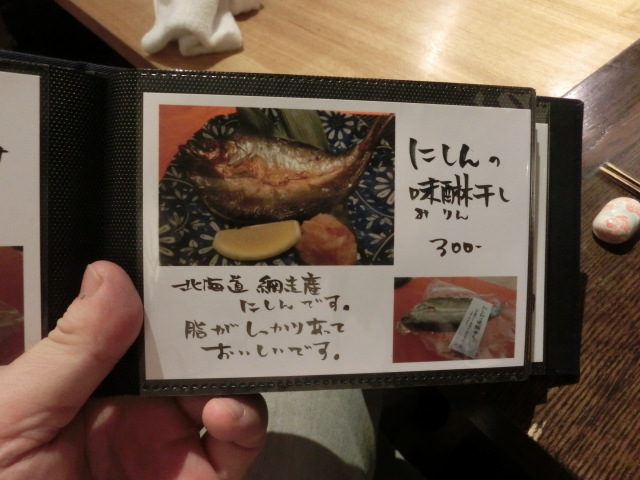 にしんの
味醂干し
みりん
300-
北海道 網走産
にしんです。
脂がしっかりあって
おいしいです。